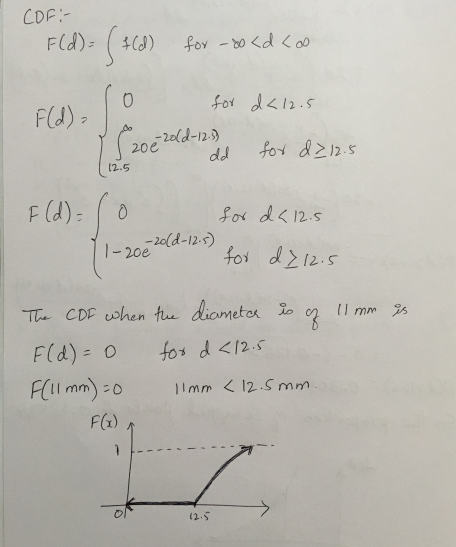 CDF:-
F(d) = ∫ f(d) for -∞ < d < ∞
F(d) = { 0 for d < 12.5
∫ 12.5 ∞ 20e^-20(d-12.5) dd for d ≥ 12.5
F(d) = { 0 for d < 12.5
1-20e^-20(d-12.5) for d ≥ 12.5
The CDF when the diameter is of 11 mm is
F(d) = 0 for d < 12.5
F(11 mm) = 0 11mm < 12.5 mm
F(x)
1
0 12.5